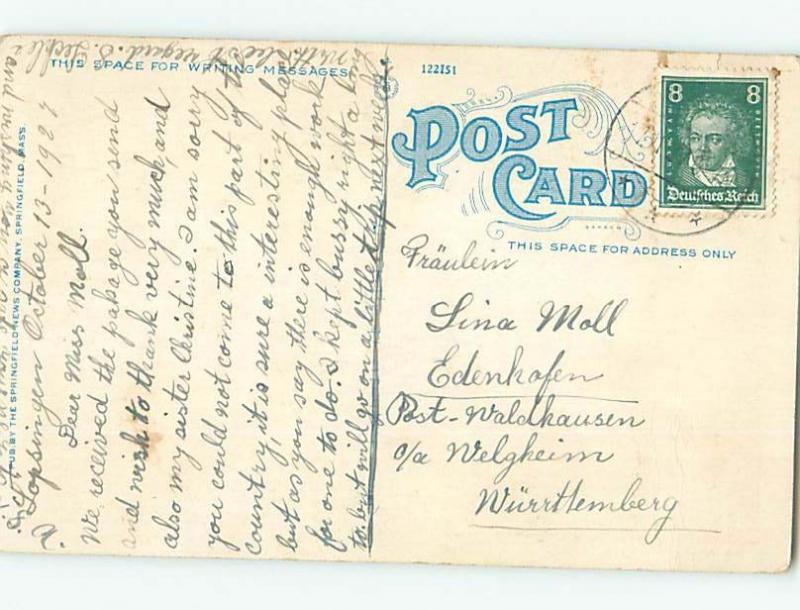 THIS SPACE FOR WRITING MESSAGES
122151
POST
CARD
THIS SPACE FOR ADDRESS ONLY
8 8
Deutsches Reich
PUB. BY THE SPRINGFIELD NEWS COMPANY, SPRINGFIELD, MASS.
Lopsingen October 13-1927
Dear Miss Moll.
We received the pakage you send
and wish to thank very much, and
also my sister Christine. I am sorry
you could not come to this part of the
country, it is sure a interesting place
but as you say there is enough work
for one to do. I kept bussy right a long
to, but will go on a little trip next week
with best regard. S.
and wishing you
Fräulein
Lina Moll
Edenhofen
Post-Waldhausen
o/a Welgheim
Württemberg